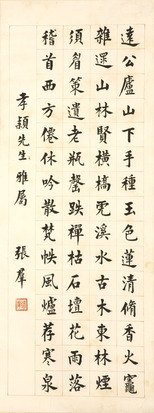 遠公廬山下手種玉色蓮清脩香火竈
雜遝山林賢橫槁虎溪水古木東林煙
須眉策遺老瓶罄跌禪枯石壇花雨落
稽首西方僊休吟散梵帙風爐荐寒泉
孝穎先生雅屬
張羣